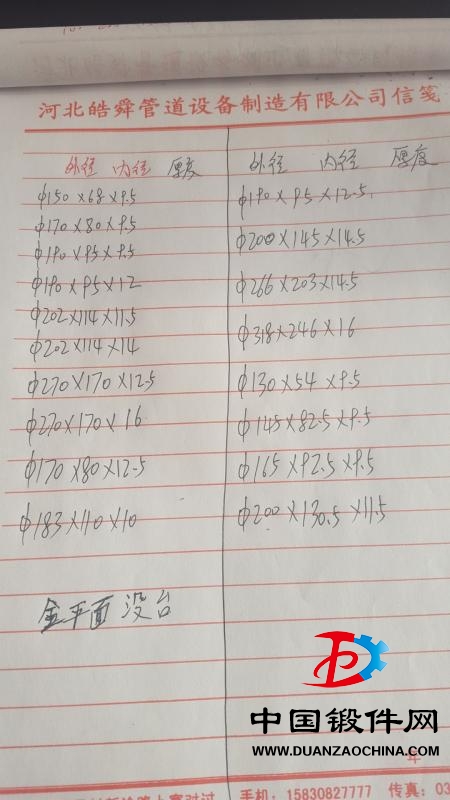 河北皓舜管道设备制造有限公司信笺
外径 内径 厚度
φ150×68×9.5
φ170×80×9.5
φ190×95×9.5
φ190×95×12
φ202×114×11.5
φ202×114×14
φ270×170×12.5
φ270×170×16
φ170×80×12.5
φ183×110×10
全平面 没台
外径 内径 厚度
φ190×95×12.5
φ200×145×14.5
φ266×203×14.5
φ318×246×16
φ130×54×9.5
φ145×82.5×9.5
φ165×92.5×9.5
φ200×130.5×11.5
中国锻件网
WWW.DUANZAOCHINA.COM
年
手机：15830827777 传真：03